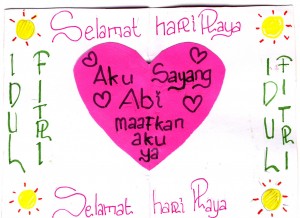 Selamat hari Raya
IDUL
FITRI
Aku Sayang
Abi
maafkan
aku
ya
FITRI
IDUL
Selamat hari Raya